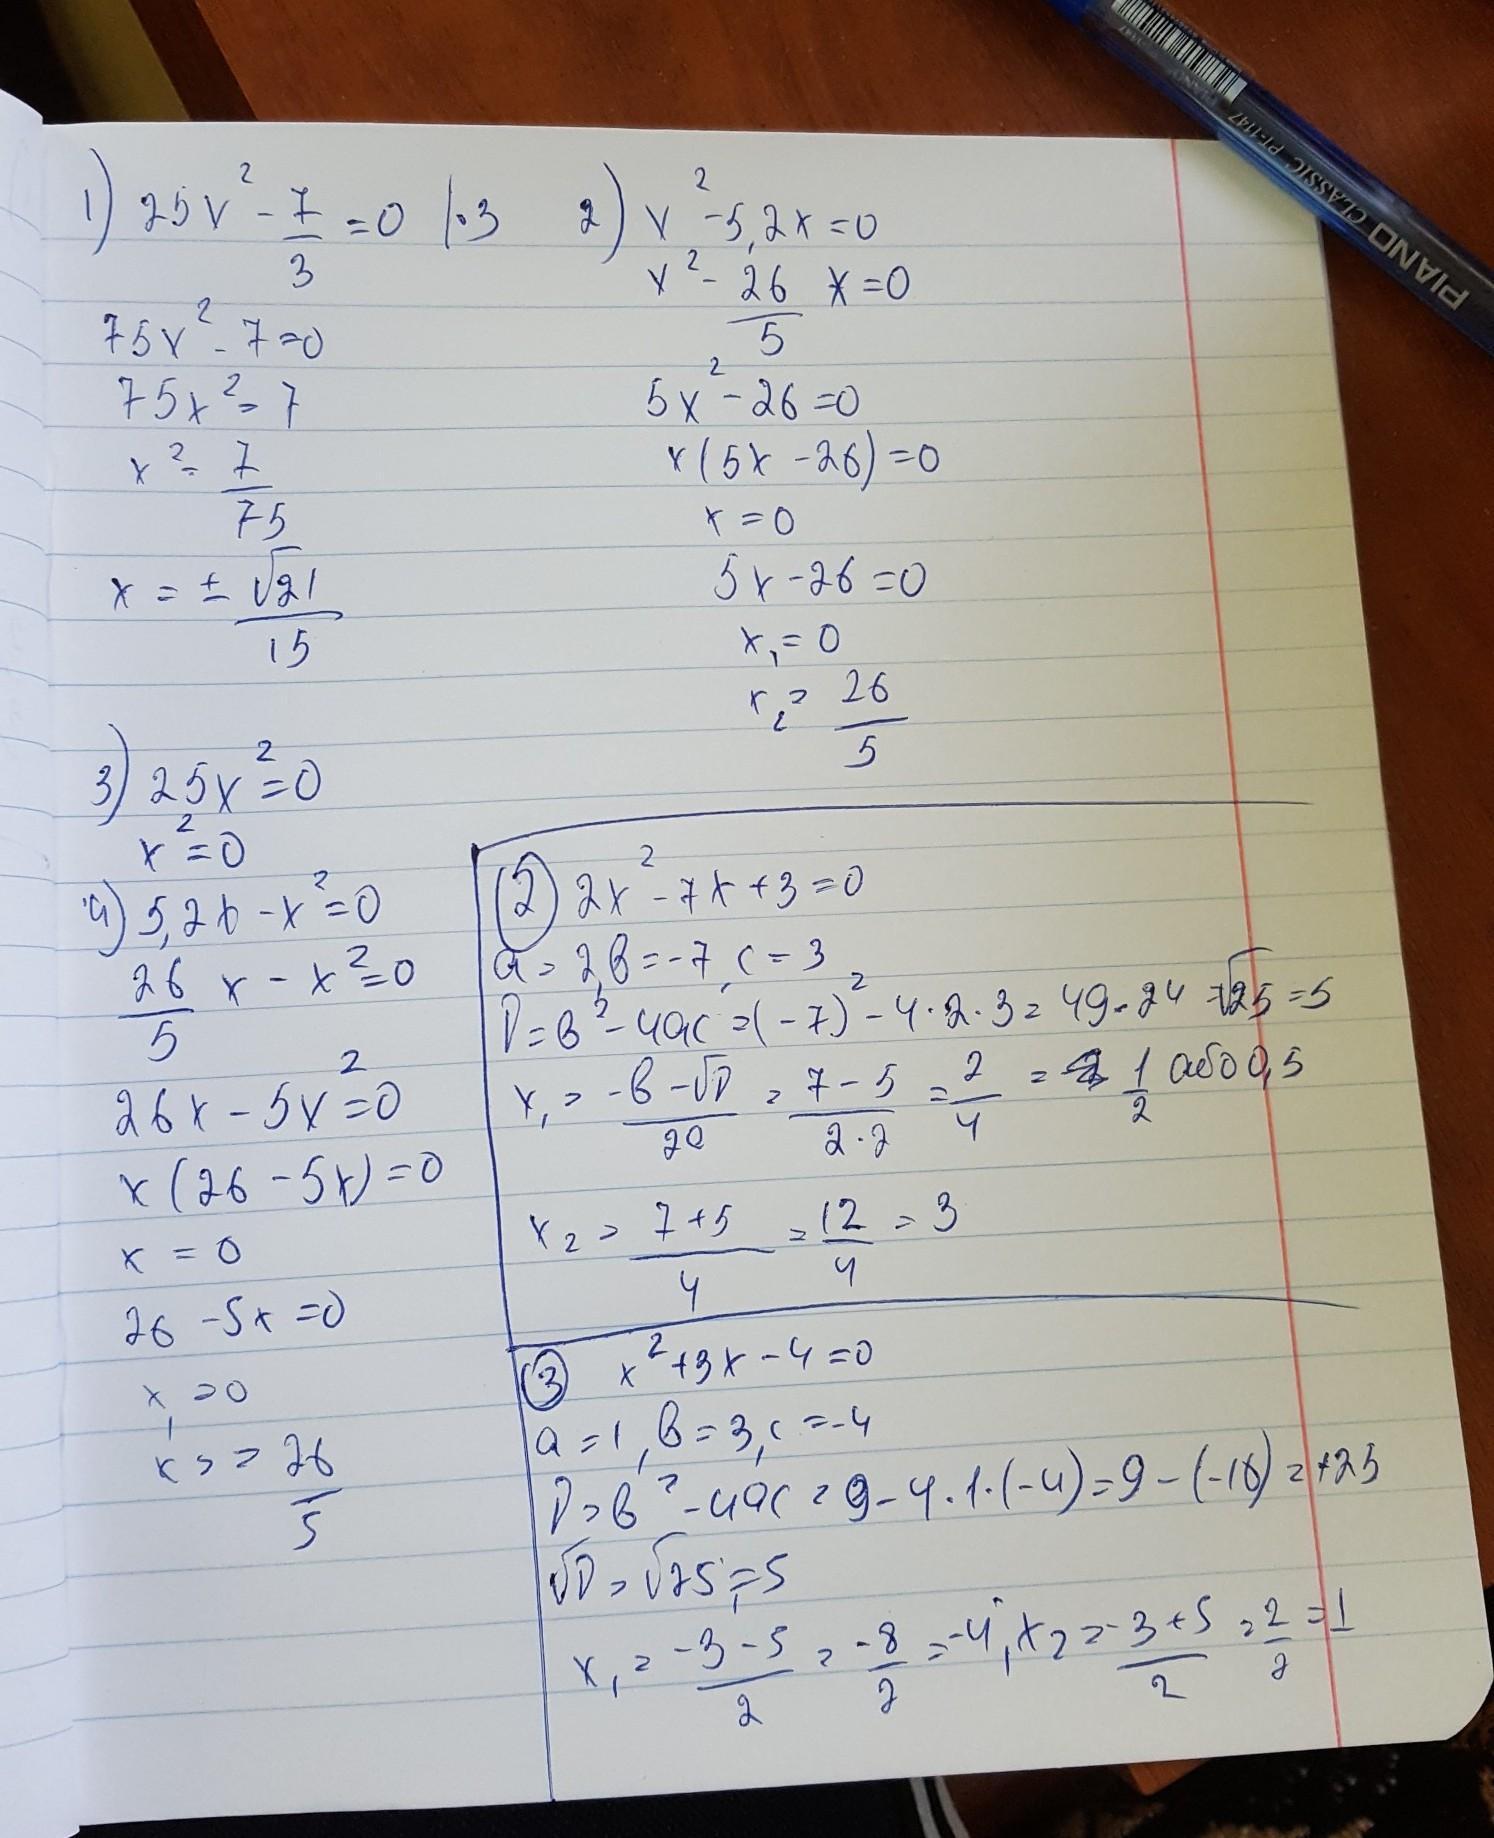 1) 25x² - 7/3 = 0 |·3
75x² - 7 = 0
75x² = 7
x² = 7/75
x = ± √21/15
2) x² - 5,2x = 0
x² - 26/5 x = 0
5x² - 26 = 0
x(5x - 26) = 0
x = 0
5x - 26 = 0
x₁ = 0
x₂ = 26/5
3) 25x² = 0
x² = 0
4) 5,2x - x² = 0
26/5 x - x² = 0
26x - 5x² = 0
x(26 - 5x) = 0
x = 0
26 - 5x = 0
x₁ = 0
x₂ = 26/5
② 2x² - 7x + 3 = 0
a = 2, b = -7, c = 3
D = b² - 4ac = (-7)² - 4·2·3 = 49 - 24 = √25 = 5
x₁ = -b - √D/2a = 7 - 5/2·2 = 2/4 = 1/2 або 0,5
x₂ = 7 + 5/4 = 12/4 = 3
③ x² + 3x - 4 = 0
a = 1, b = 3, c = -4
D = b² - 4ac = 9 - 4·1·(-4) = 9 - (-16) = +25
√D = √25 = 5
x₁ = -3 - 5/2 = -8/2 = -4, x₂ = -3 + 5/2 = 2/2 = 1
PIANO CLASSIC PT-1147